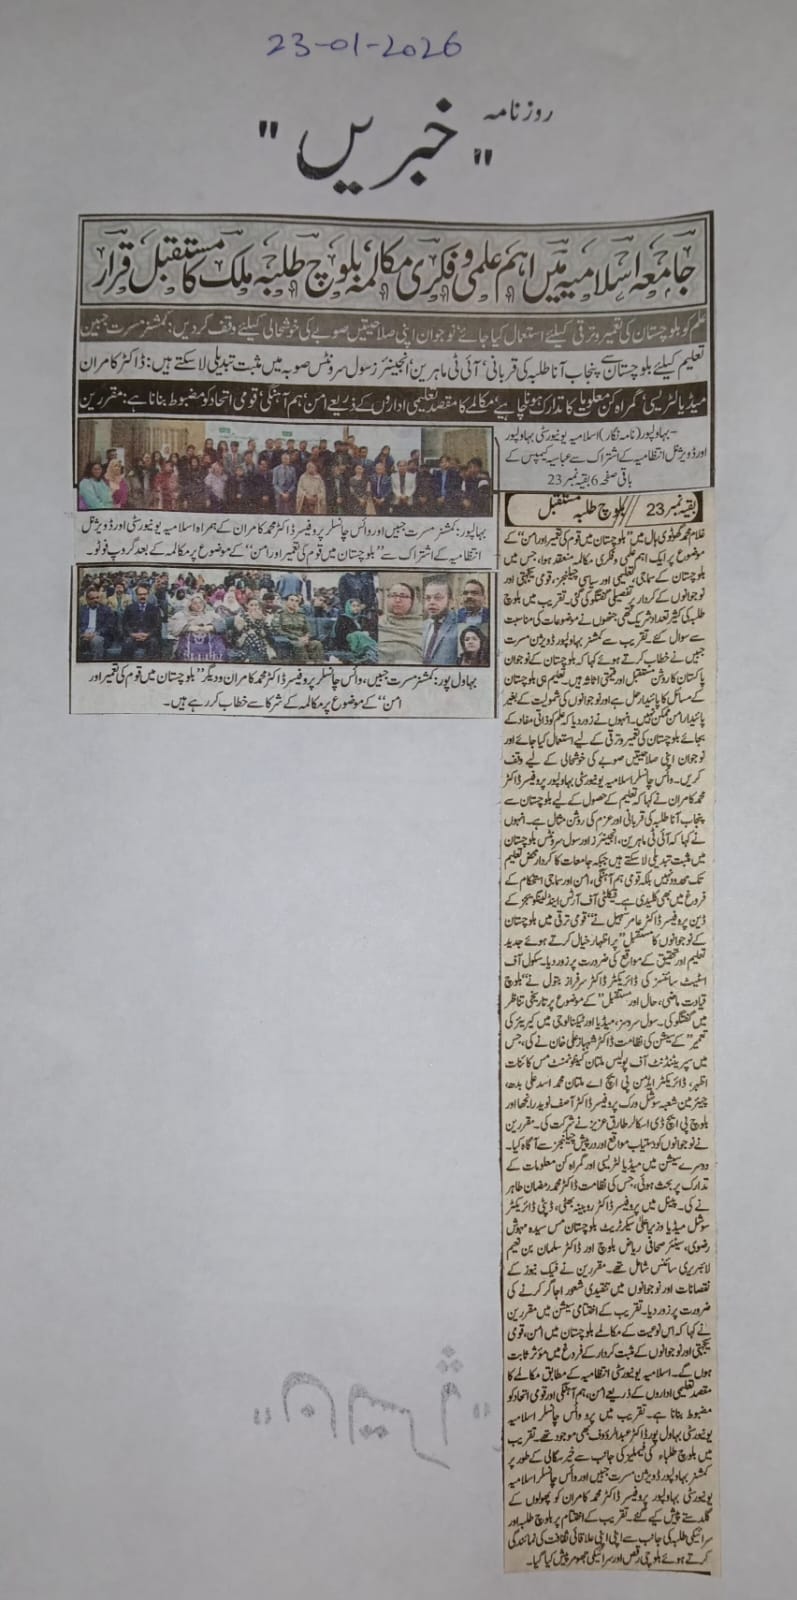 23-01-2026
روزنامہ
"خبریں"
جامعہ اسلامیہ میں اہم علمی و فکری مکالمہ، بلوچ طلبہ ملک کا مستقبل قرار
علم کو بلوچستان کی تعمیر و ترقی کیلئے استعمال کیا جائے، نوجوان اپنی صلاحیتیں صوبے کی خوشحالی کیلئے وقف کر دیں: کمشنر مسرت جبین
تعلیم کیلئے بلوچستان سے پنجاب آنا طلبہ کی قربانی، آئی ٹی ماہرین، انجینئرز سول سرونٹس صوبہ میں مثبت تبدیلی لا سکتے ہیں: ڈاکٹر کامران
میڈیا لٹریسی، گمراہ کن معلومات کا تدارک ہونا چاہیے، مکالمے کا مقصد تعلیمی اداروں کے ذریعے امن، ہم آہنگی، قومی اتحاد کو مضبوط بنانا ہے: مقررین
بہاولپور (نامہ نگار) اسلامیہ یونیورسٹی بہاولپور
اور ڈویژنل انتظامیہ کے اشتراک سے عباسیہ کیمپس کے
باقی صفحہ 6 بقیہ نمبر 23
بہاولپور: کمشنر مسرت جبیں اور وائس چانسلر پروفیسر ڈاکٹر محمد کامران کے ہمراہ اسلامیہ یونیورسٹی اور ڈویژنل
انتظامیہ کے اشتراک سے "بلوچستان میں قوم کی تعمیر اور امن" کے موضوع پر مکالمہ کے بعد گروپ فوٹو۔
بہاول پور: کمشنر مسرت جبیں، وائس چانسلر پروفیسر ڈاکٹر محمد کامران و دیگر "بلوچستان میں قوم کی تعمیر اور
امن" کے موضوع پر مکالمہ کے شرکا سے خطاب کر رہے ہیں۔
بقیہ نمبر 23 // بلوچ طلبہ مستقبل
غلام محمد گھوٹوی ہال میں "بلوچستان میں قوم کی تعمیر اور امن" کے
موضوع پر ایک اہم علمی و فکری مکالمہ منعقد ہوا، جس میں
بلوچستان کے سماجی، تعلیمی اور سیاسی چیلنجز، قومی یکجہتی اور
نوجوانوں کے کردار پر تفصیلی گفتگو کی گئی۔ تقریب میں بلوچ
طلبہ کی کثیر تعداد شریک تھی جنھوں نے موضوعات کی مناسبت
سے سوال کئے۔ تقریب سے کمشنر بہاولپور ڈویژن مسرت
جبیں نے خطاب کرتے ہوئے کہا کہ بلوچستان کے نوجوان
پاکستان کا روشن مستقبل اور قیمتی اثاثہ ہیں۔ تعلیم ہی بلوچستان
کے مسائل کا پائیدار حل ہے اور نوجوانوں کی شمولیت کے بغیر
پائیدار امن ممکن نہیں۔ انہوں نے زور دیا کہ علم کو ذاتی مفاد کے
بجائے بلوچستان کی تعمیر و ترقی کے لیے استعمال کیا جائے اور
نوجوان اپنی صلاحیتیں صوبے کی خوشحالی کے لیے وقف
کریں۔ وائس چانسلر اسلامیہ یونیورسٹی بہاولپور پروفیسر ڈاکٹر
محمد کامران نے کہا کہ تعلیم کے حصول کے لیے بلوچستان سے
پنجاب آنا طلبہ کی قربانی اور عزم کی روشن مثال ہے۔ انہوں
نے کہا کہ آئی ٹی ماہرین، انجینئرز اور سول سرونٹس بلوچستان
میں مثبت تبدیلی لا سکتے ہیں جبکہ جامعات کا کردار محض تعلیم
تک محدود نہیں بلکہ قومی ہم آہنگی، امن اور سماجی استحکام کے
فروغ میں بھی کلیدی ہے۔ فیکلٹی آف آرٹس اینڈ لینگویجز کے
ڈین پروفیسر ڈاکٹر عامر سہیل نے "قومی ترقی میں بلوچستان
کے نوجوانوں کا مستقبل" پر اظہار خیال کرتے ہوئے جدید
تعلیم اور تحقیق کے مواقع کی ضرورت پر زور دیا۔ سکول آف
اسٹیٹ سائنسز کی ڈائریکٹر ڈاکٹر سرفراز بتول نے "بلوچ
قیادت ماضی، حال اور مستقبل" کے موضوع پر تاریخی تناظر
میں گفتگو کی۔ سول سروسز، میڈیا اور ٹیکنالوجی میں کیریئر کی
تعمیر" کے سیشن کی نظامت ڈاکٹر شہباز علی خان نے کی، جس
میں سپرینٹنڈنٹ آف پولیس ملتان کینٹونمنٹ مس کائنات
اظہر، ڈائریکٹر ایڈمن پی ایچ اے ملتان محمد اسد علی بدھ،
چیئرمین شعبہ سوشل ورک پروفیسر ڈاکٹر آصف نوید رانجھا اور
بلوچ پی ایچ ڈی اسکالر طارق عزیز نے شرکت کی۔ مقررین
نے نوجوانوں کو دستیاب مواقع اور درپیش چیلنجز سے آگاہ کیا۔
دوسرے سیشن میں میڈیا لٹریسی اور گمراہ کن معلومات کے
تدارک پر بحث ہوئی، جس کی نظامت ڈاکٹر محمد رمضان طاہر
نے کی۔ پینل میں پروفیسر ڈاکٹر روبینہ بھٹی، ڈپٹی ڈائریکٹر
سوشل میڈیا وزیر اعلیٰ سیکرٹریٹ بلوچستان مس سیدہ مہوش
رضوی، سینئر صحافی ریاض بلوچ اور ڈاکٹر سلمان بن نعیم
لائبریری سائنس شامل تھے۔ مقررین نے فیک نیوز کے
نقصانات اور نوجوانوں میں تنقیدی شعور اجاگر کرنے کی
ضرورت پر زور دیا۔ تقریب کے اختتامی سیشن میں مقررین
نے کہا کہ اس نوعیت کے مکالمے بلوچستان میں امن، قومی
یکجہتی اور نوجوانوں کے مثبت کردار کے فروغ میں مؤثر ثابت
ہوں گے۔ اسلامیہ یونیورسٹی انتظامیہ کے مطابق مکالمے کا
مقصد تعلیمی اداروں کے ذریعے امن، ہم آہنگی اور قومی اتحاد کو
مضبوط بنانا ہے۔ تقریب میں پرو وائس چانسلر اسلامیہ
یونیورسٹی بہاول پور ڈاکٹر عبدالرؤوف بھی موجود تھے۔ تقریب
میں بلوچ طلباء کی فیملیز کی جانب سے خیر سگالی کے طور پر
کمشنر بہاولپور ڈویژن مسرت جبیں اور وائس چانسلر اسلامیہ
یونیورسٹی بہاولپور پروفیسر ڈاکٹر محمد کامران کو پھولوں کے
گلدستے پیش کیے گئے۔ تقریب کے اختتام پر بلوچ طلبہ اور
سرائیکی طلبہ کی جانب سے اپنی اپنی علاقائی ثقافت کی نمائندگی
کرتے ہوئے بلوچی رقص اور سرائیکی جھومر پیش کیا گیا۔